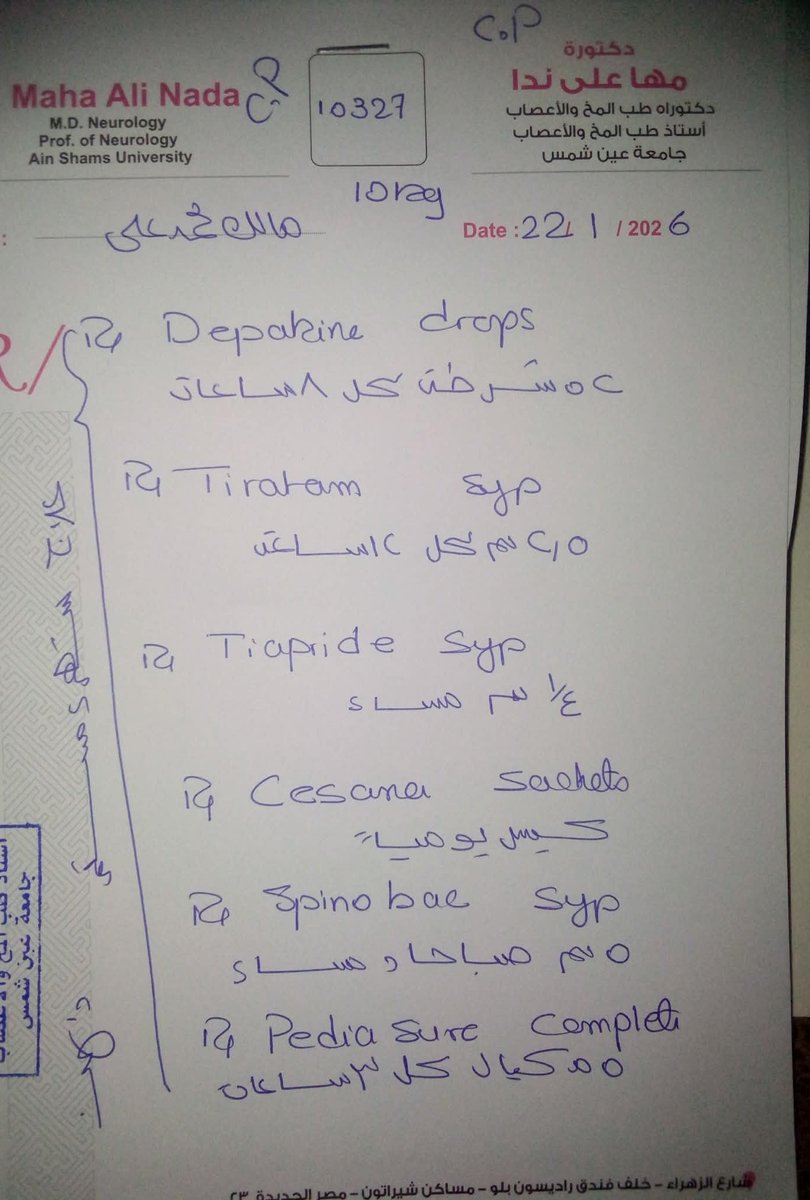 C.P
دكتورة
مها على ندا
دكتوراه طب المخ والأعصاب
أستاذ طب المخ والأعصاب
جامعة عين شمس
Maha Ali Nada
M.D. Neurology
Prof. of Neurology
Ain Shams University
10327
10 kg
مالك محمد على
Date : 22 / 1 / 2026
R/
Depakine drops
شرطة كل ٨ ساعات
Tiratam syp
٢,٥ سم كل ١٢ ساعة
Tiapride syp
١/٤ سم مساء
Cesana sachets
كيس يوميا
Spinobac syp
٥ سم صباحا ومساء
Pediasure Complete
٥ مكيال كل ٣ ساعات
أستاذ طب المخ والأعصاب
جامعة عين شمس
شارع الزهراء - خلف فندق راديسون بلو - مساكن شيراتون - مصر الجديدة ٢٣